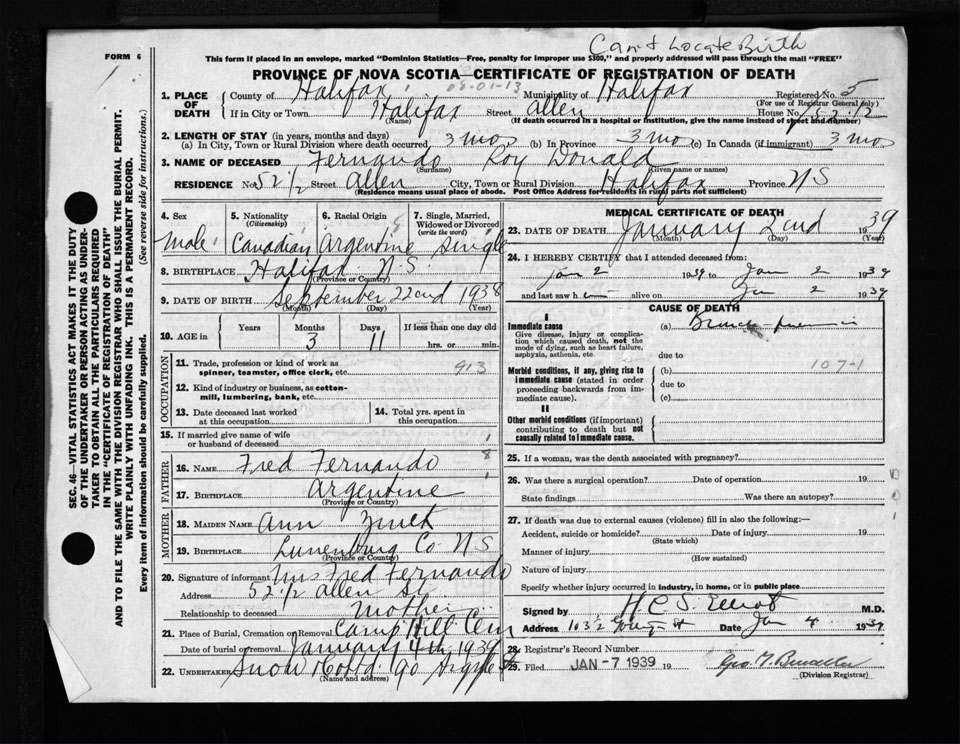 Can't Locate Birth
FORM 6
This form if placed in an envelope, marked "Dominion Statistics—Free, penalty for improper use $300," and properly addressed will pass through the mail "FREE"
PROVINCE OF NOVA SCOTIA—CERTIFICATE OF REGISTRATION OF DEATH
1. PLACE OF DEATH
County of Halifax 08-01-13 Municipality of Halifax Registered No. 5
(For use of Registrar General only)
If in City or Town Halifax Street Allen House No.
(Name) (If death occurred in a hospital or institution, give the name instead of street and number)
2. LENGTH OF STAY (in years, months and days)
(a) In City, Town or Rural Division where death occurred, 3 mos (b) In Province 3 mo (c) In Canada (if immigrant) 3 mos
3. NAME OF DECEASED Fernando Roy Donald
(Surname) (Given name or names)
RESIDENCE No. 52 1/2 Street Allen City, Town or Rural Division Halifax Province NS
(Residence means usual place of abode. Post Office Address for residents in rural parts not sufficient)
4. Sex
Male
5. Nationality
(Citizenship)
Canadian
6. Racial Origin
Argentine
7. Single, Married,
Widowed or Divorced
(write the word)
Single
8. BIRTHPLACE Halifax N.S.
(Province or Country)
9. DATE OF BIRTH September 22cnd 1938
(Month) (Day) (Year)
10. AGE in
Years Months Days If less than one day old
3 11 hrs. or min.
OCCUPATION
11. Trade, profession or kind of work as
spinner, teamster, office clerk, etc. 913
12. Kind of industry or business, as cotton-
mill, lumbering, bank, etc.
13. Date deceased last worked
at this occupation
14. Total yrs. spent in
this occupation
15. If married give name of wife
or husband of deceased
FATHER
16. Name Fred Fernando
17. Birthplace Argentine
(Province or Country)
MOTHER
18. Maiden Name Ann
19. Birthplace Lunenburg Co NS
(Province or Country)
20. Signature of informant Mrs Fred Fernando
Address 52 1/2 Allen St.
Relationship to deceased Mother
21. Place of Burial, Cremation or Removal Camp Hill Cem
Date of burial or removal January 4th 1939
22. Undertaker Snow & Co Ltd 90 Argyle St
(Name and address)
MEDICAL CERTIFICATE OF DEATH
23. DATE OF DEATH January 2cnd 1939
(Month) (Day) (Year)
24. I HEREBY CERTIFY that I attended deceased from:
Jan 2 1939 to Jan 2 1939
and last saw h im alive on Jan 2 1939
CAUSE OF DEATH
I
Immediate cause
Give disease, injury or complication which caused death, not the mode of dying, such as heart failure, asphyxia, asthenia, etc.
(a) Broncho pneumonia
due to
Morbid conditions, if any, giving rise to immediate cause (stated in order proceeding backwards from immediate cause).
(b) 107-1
due to
(c)
II
Other morbid conditions (if important) contributing to death but not causally related to immediate cause.
25. If a woman, was the death associated with pregnancy?
26. Was there a surgical operation? Date of operation 19
State findings Was there an autopsy?
27. If death was due to external causes (violence) fill in also the following:—
Accident, suicide or homicide? Date of injury 19
(State which)
Manner of injury
(How sustained)
Nature of injury
Specify whether injury occurred in industry, in home, or in public place
Signed by H.C.S. Elliot M.D.
Address 103 1/2 Date Jan 4 1939
28. Registrar's Record Number
29. Filed JAN -7 1939 19
(Division Registrar)
SEC. 46—VITAL STATISTICS ACT MAKES IT THE DUTY
OF THE UNDERTAKER OR PERSON ACTING AS UNDER-
TAKER TO OBTAIN ALL THE PARTICULARS REQUIRED
IN THE "CERTIFICATE OF REGISTRATION OF DEATH"
AND TO FILE THE SAME WITH THE DIVISION REGISTRAR WHO SHALL ISSUE THE BURIAL PERMIT.
WRITE PLAINLY WITH UNFADING INK. THIS IS A PERMANENT RECORD.
Every item of information should be carefully supplied. (See reverse side for instructions.)